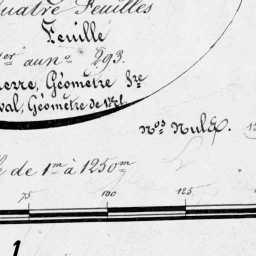 quatre Feuilles
Feuille
au nº 293.
Géomètre
val, Géomètre de 1re cl
Nos Nuls.
de 1m à 1250m
75 100 125
1